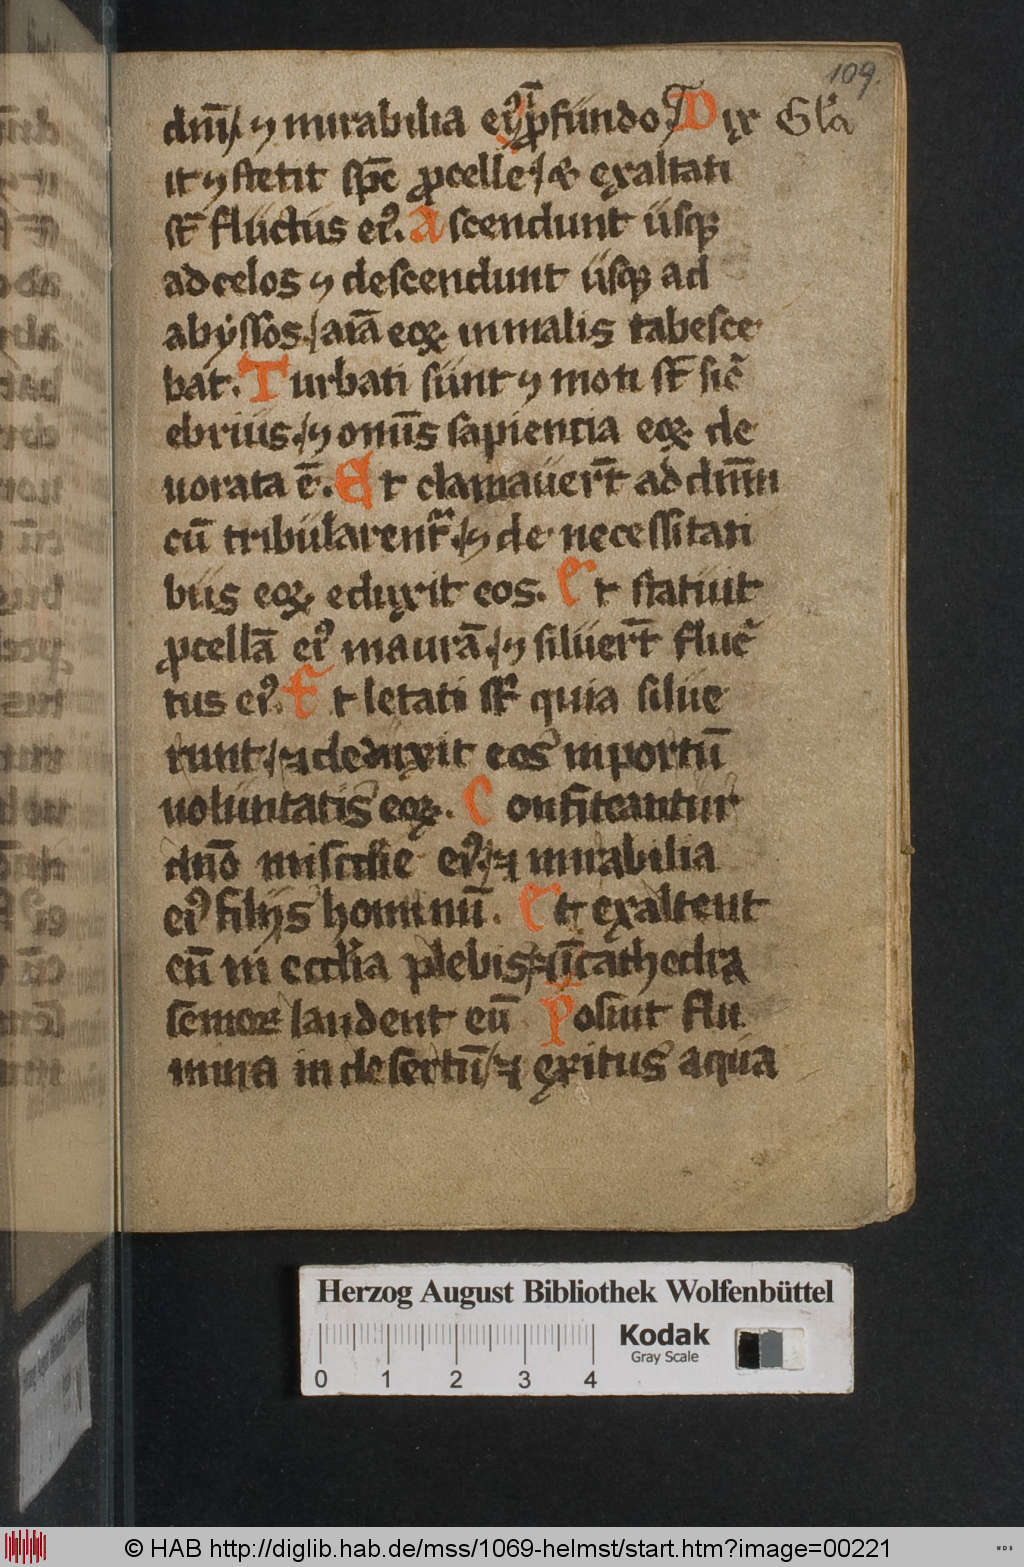 109.
dnī / ⁊ mirabilia eiꝰ ī ꝓfundo / Dix Gl̄a
it ⁊ stetit spc̄ ꝓcelle / & exaltati
st̄ fluctus eiꝰ. Ascendunt usqꝫ
ad celos ⁊ descendunt usqꝫ ad
abyssos / aīa eoꝝ in malis tabesce
bat. Turbati sunt ⁊ moti st̄ sic̄
ebrius / ⁊ omīs sapiencia eoꝝ de
uorata ē. Et clamauer̄t ad dn̄m
cū tribularent᷑ / ⁊ de necessitati
bus eoꝝ eduxit eos. Et statuit
ꝓcellā eiꝰ in aurā / ⁊ siluer̄t fluc̄
tus eiꝰ. Et letati st̄ quia silue
runt / ⁊ deduxit eos in portū
uoluntatis eoꝝ. Confiteantur
dn̄o mīscdīe eiꝰ / ⁊ mirabilia
eiꝰ filijs hominū. Et exaltent
eū in eccl̄ia plebis / ⁊ ī cathedra
senioꝝ laudent eū Posuit flu
mina in desertū / ⁊ exitus aqua
Herzog August Bibliothek Wolfenbüttel
Kodak
Gray Scale
0 1 2 3 4
© HAB http://diglib.hab.de/mss/1069-helmst/start.htm?image=00221